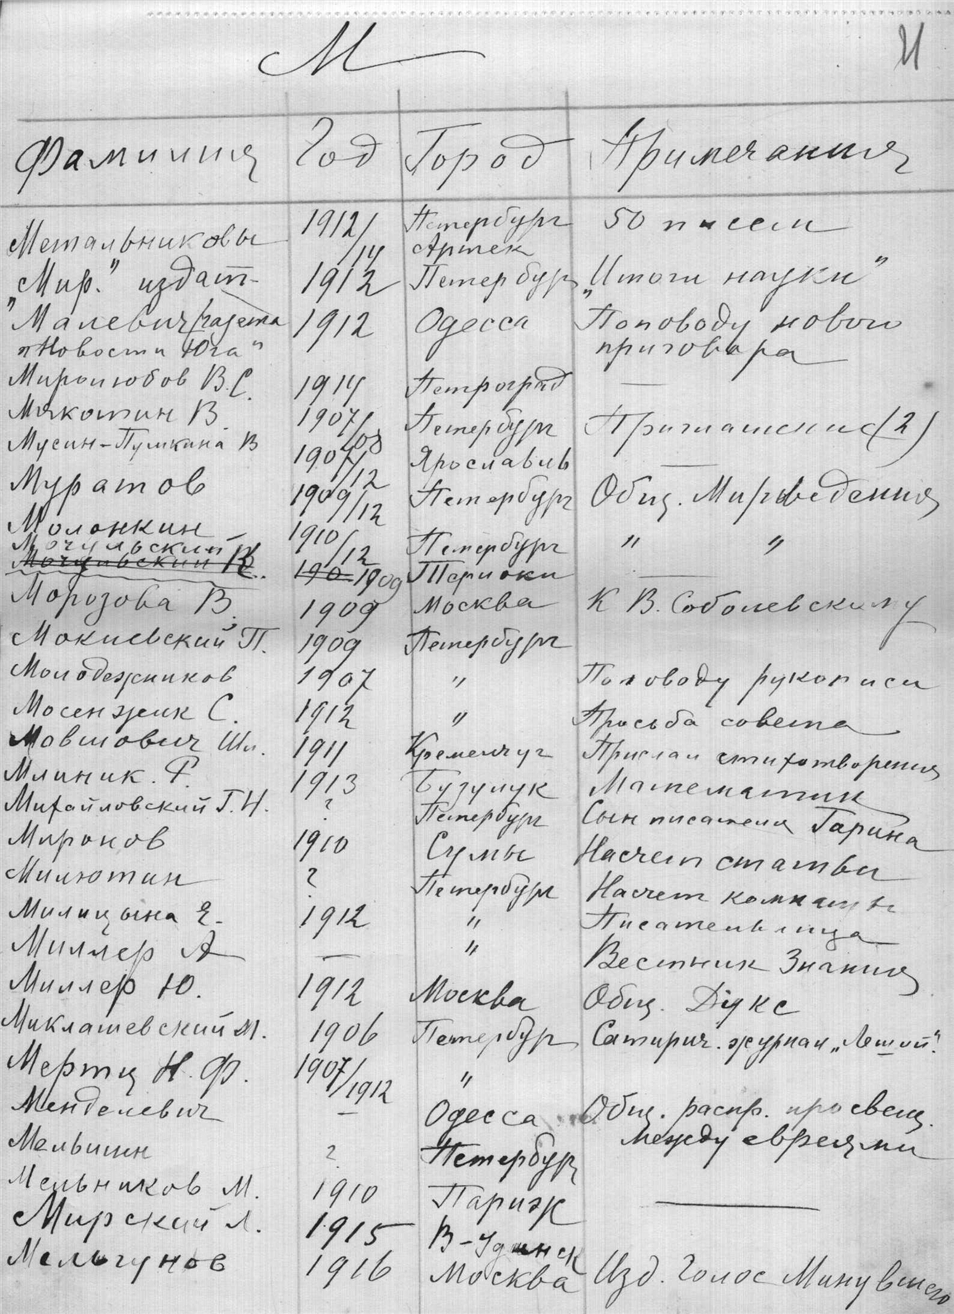 М
21
Фамилия Год Город Примечания
Метальниковы 1912/14 Петербург 50 писем
Артек
„Мир." издат- 1912 Петербург „Итоги науки"
Малевич (газета 1912 Одесса По поводу нового
„Новости Юга" приговора
Миролюбов В.С. 1914 Петроград —
Мякотин В. 1907/08 Петербург Приглашение (2)
Мусин-Пушкина В 1907/12 Ярославль —
Муратов 1909/12 Петербург Общ. Мироведения
Молонкин 1910/12 Петербург " "
Мочульский
Мочульский К. 190 1909 Териоки —
Морозова В. 1909 Москва К В. Соболевскому
Мокиевский П. 1909 Петербург
Молодежников 1907 " По поводу рукописи
Мосенжик С. 1912 " Просьба совета
Мовшович Шл. 1911 Кременчуг Прислал стихотворения
Млиник. Р. 1913 Бузулук Математик
Михайловский Г.Н. ? Петербург Сын писателя Гарина
Миронов 1910 Сумы Насчет статьи
Милютин ? Петербург Насчет комнаты
Милицына Е. 1912 " Писательница
Миллер А — " Вестник Знания
Миллер Ю. 1912 Москва Общ. Дукс
Миклашевский М. 1906 Петербург Сатирич. журнал „Леший".
Мертц Н. Ф. 1907/1912 "
Менделевич — Одесса Общ. распр. просвещ.
между евреями
Мельшин ? Петербург
Мельников М. 1910 Париж —
Мирский Л. 1915 В-Удинск
Мельгунов 1916 Москва Изд. Голос Минувшего